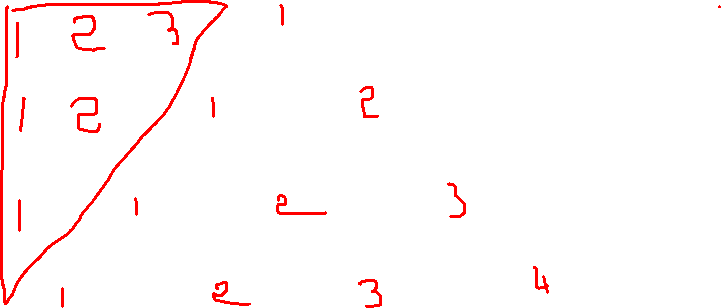 1 2 3 1
1 2 1 2
1 1 2 3
1 2 3 4